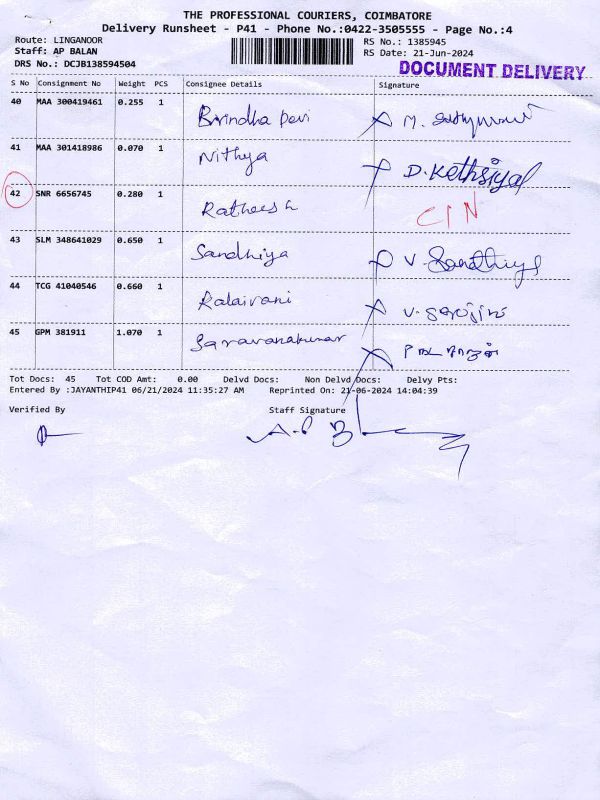 THE PROFESSIONAL COURIERS, COIMBATORE
Delivery Runsheet - P41 - Phone No.:0422-3505555 - Page No.:4
Route: LINGANOOR RS No.: 1385945
Staff: AP BALAN RS Date: 21-Jun-2024
DRS No.: DCJB138594504 DOCUMENT DELIVERY
S No Consignment No Weight PCS Consignee Details Signature
40 MAA 300419461 0.255 1 Brindha Devi M.
41 MAA 301418986 0.070 1 Nithya D. Kethsiyal
42 SNR 6656745 0.280 1 Ratheesh CIN
43 SLM 348641029 0.650 1 Sandhiya V. Sandhiya
44 TCG 41040546 0.660 1 Kalaivani V. Sarojini
45 GPM 381911 1.070 1 Saravanakumar
Tot Docs: 45 Tot COD Amt: 0.00 Delvd Docs: Non Delvd Docs: Delvy Pts:
Entered By :JAYANTHIP41 06/21/2024 11:35:27 AM Reprinted On: 21-06-2024 14:04:39
Verified By Staff Signature